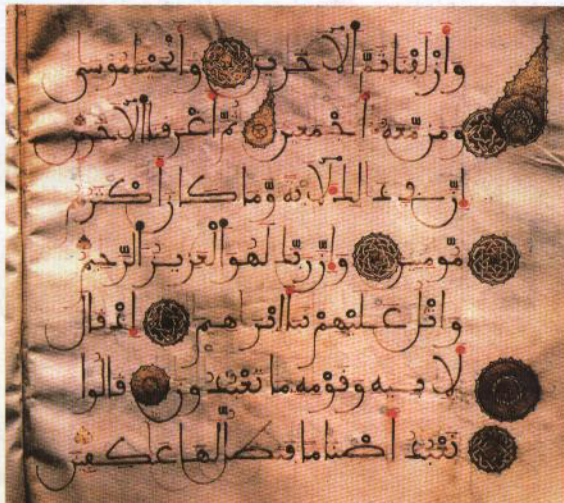 وأزلفنا ثم الاخرين وأنجينا موسى
ومن معه أجمعين ثم أغرقنا الاخرين
إن في ذلك لاية وما كان أكثرهم
مومنين وإن ربك لهو العزيز الرحيم
واتل عليهم نبأ إبراهيم إذ قال
لابيه وقومه ما تعبدون قالوا
نعبد أصناما فنظل لها عكفين